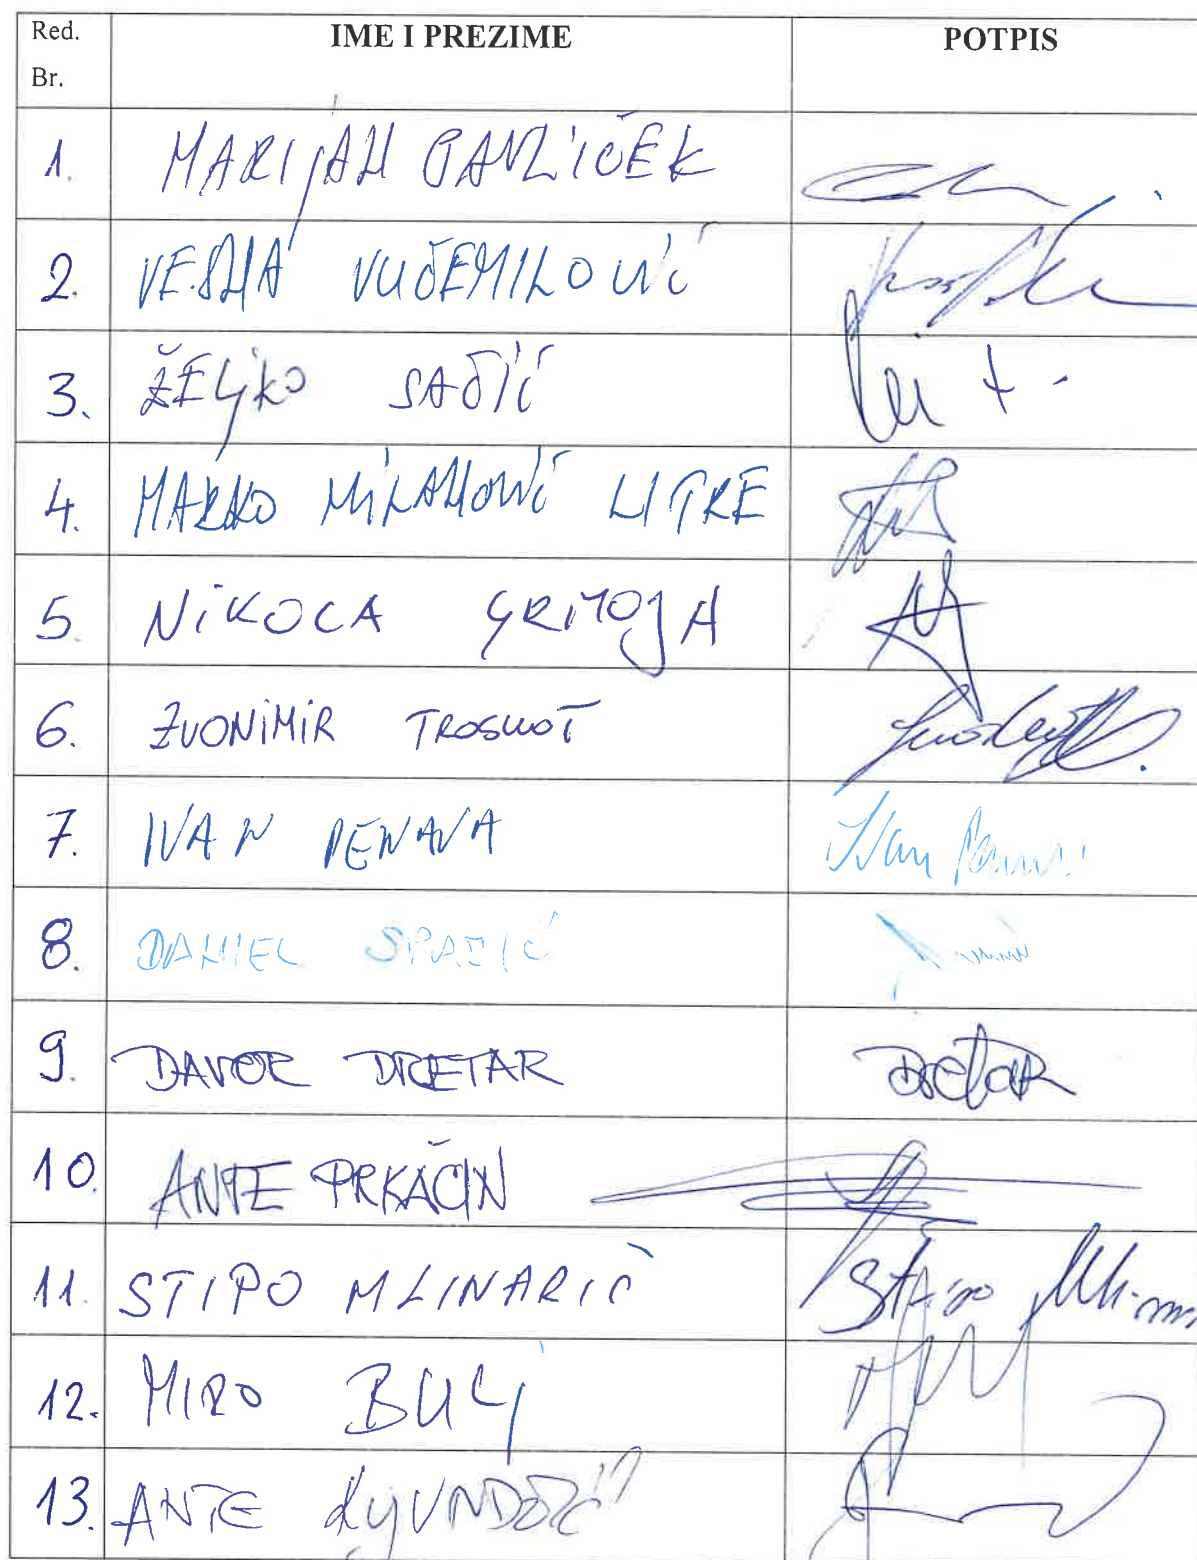 Red. Br. IME I PREZIME POTPIS
1. MARIJAN PAVLIČEK
2. VESNA VUČEMILOVIĆ
3. ŽELJKO SAČIĆ
4. MARKO MILANOVIĆ LITRE
5. NIKOLA GRMOJA
6. ZVONIMIR TROSKOT
7. IVAN PENAVA Ivan
8. DANIEL SPAJIĆ
9. DAVOR DRETAR Dretar
10. ANTE PRKAČIN
11. STIPO MLINARIĆ Stipo
12. MIRO BULJ
13. ANTE